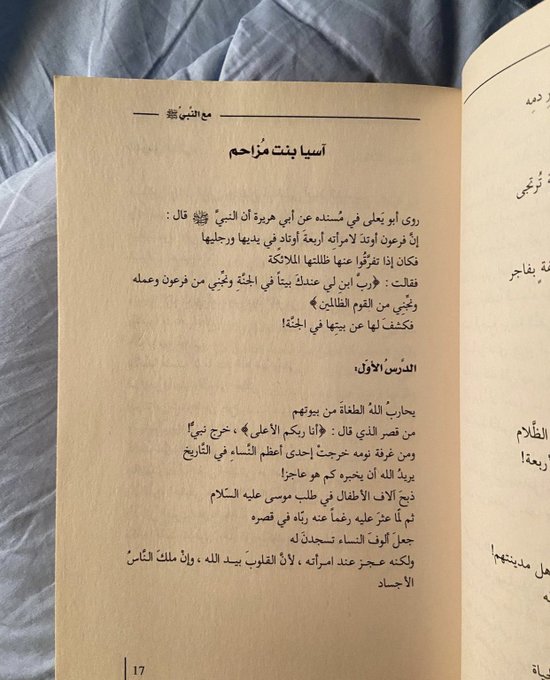 مع النبيّ ﷺ
آسيا بنت مُزاحم
روى أبو يَعلى في مُسنده عن أبي هريرة أن النبيَّ ﷺ قال :
إنَّ فرعون أوتدَ لامرأته أربعةَ أوتاد في يديها ورجليها
فكان إذا تفرَّقُوا عنها ظللتها الملائكة
فقالت : ﴿ربَّ ابنِ لي عندكَ بيتاً في الجنَّة ونجِّنِي من فرعون وعمله
ونجِّنِي من القوم الظالمين﴾
فكشفَ لها عن بيتها في الجنَّة!
الدَّرسُ الأوّل:
يحاربُ اللهُ الطغاةَ من بيوتهم
من قصر الذي قال : ﴿أنا ربكم الأعلى﴾ ، خرج نبيٌّ!
ومن غرفة نومه خرجتْ إحدى أعظم النَّساءِ في التَّاريخ
يريدُ الله أن يخبره كم هو عاجز!
ذبحَ آلاف الأطفال في طلب موسى عليه السّلام
ثم لمَّا عثرَ عليه رغماً عنه ربّاه في قصره
جعلَ ألوفَ النساء تسجدنَ له
ولكنه عجز عند امرأته ، لأنَّ القلوبَ بيد الله ، وإنْ ملكَ النَّاسُ
الأجساد
17
ر دمِه
ةَ تُرتجى
فةٍ بِفاجر
الظَّلام
أربعة!
هل مدينتهم!
ـه
حياة